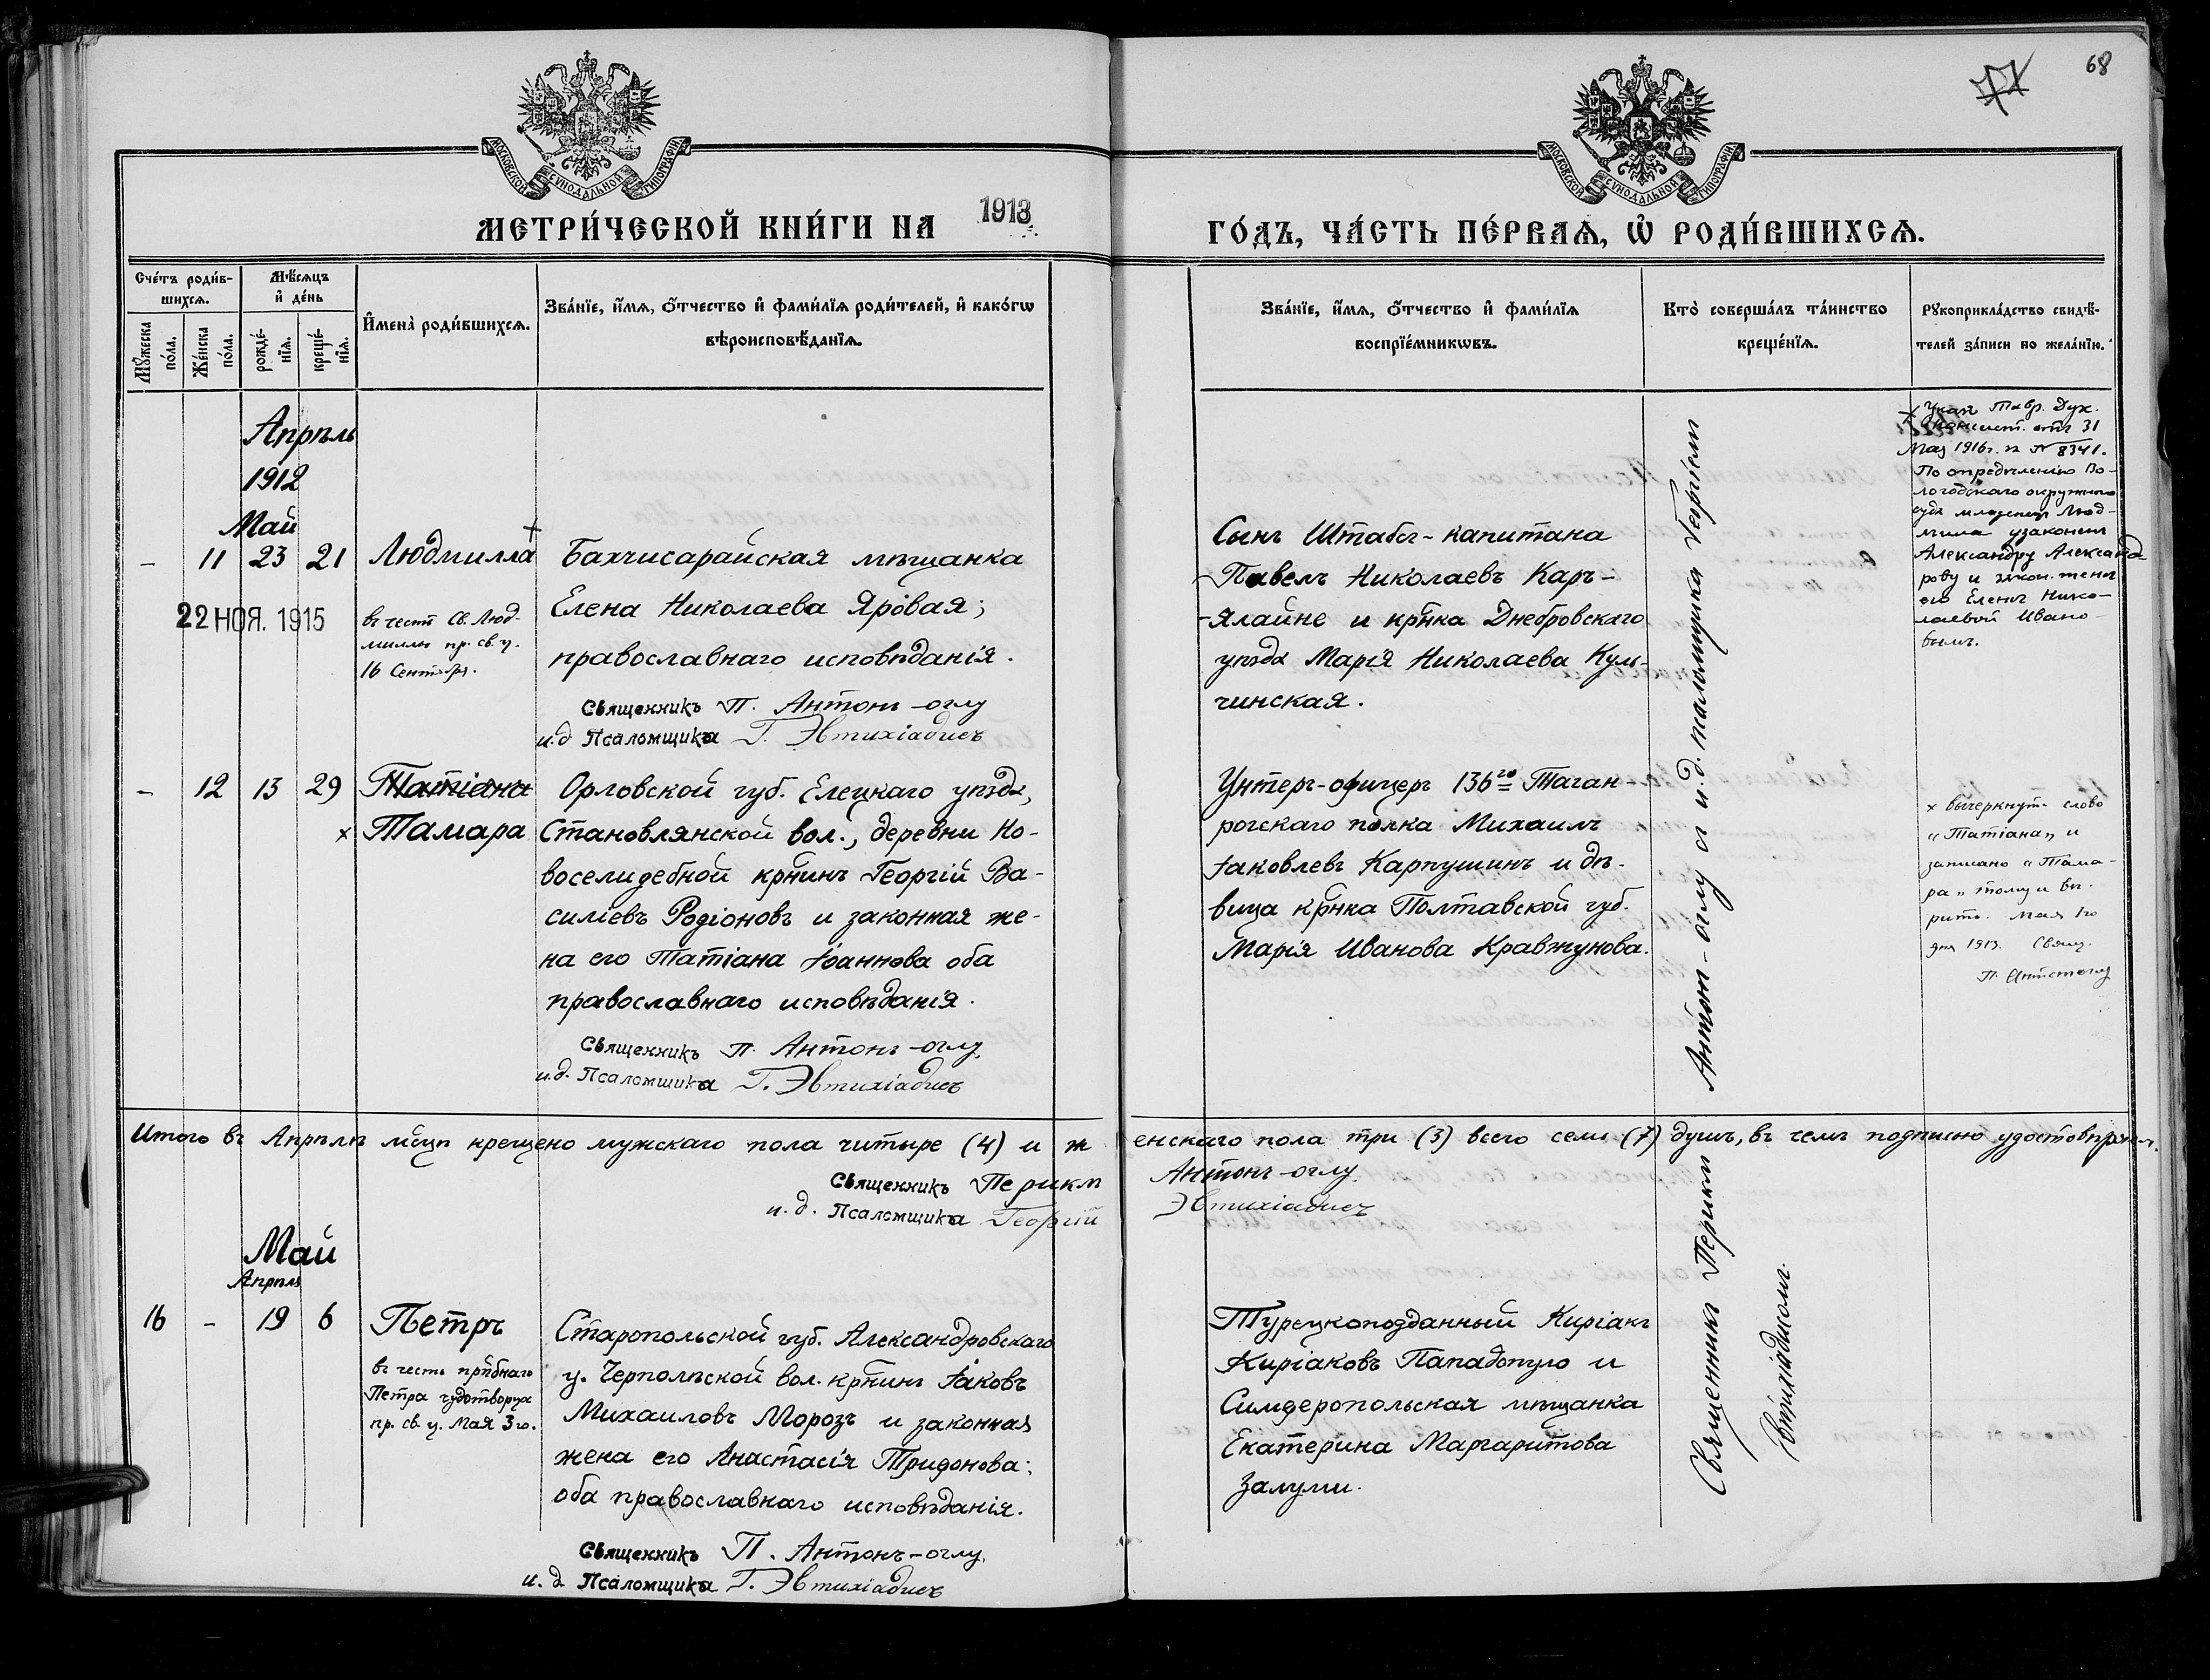 68
МОСКОВСКОЙ СѴНОДАЛЬНОЙ ТИПОГРАФІИ
МОСКОВСКОЙ СѴНОДАЛЬНОЙ ТИПОГРАФІИ
МЕТРИ́ЧЕСКОЙ КНИ́ГИ НА 1913 ГО́ДЪ, ЧА́СТЬ ПЕ́РВАѦ, Ѡ҆ РОДИ́ВШИХСѦ.
Сче́тъ роди́в-
шихсѧ.
Мѣ́сѧцъ
и҆ де́нь
Мꙋ́жеска
по́ла.
Же́нска
по́ла.
рожде́-
нїѧ.
креще́-
нїѧ.
И҆мена̀ роди́вшихсѧ.
Зва́нїе, и҆́мѧ, ѻ҆́тчество и҆ фами́лїѧ роди́телей, и҆ како́гѡ
вѣроисповѣ́данїѧ.
Зва́нїе, и҆́мѧ, ѻ҆́тчество и҆ фами́лїѧ
воспрїе́мникѡвъ.
Кто̀ соверша́лъ та́инство
креще́нїѧ.
Рꙋкоприкла́дство свидѣ́-
телей за́писи по жела́нїю.
Апрѣль
1912
Май
- 11 23 21
22 НОЯ. 1915
Людмилла +
въ честь Св. Люд-
миллы пр. св. ц.
16 Сентября.
Бахчисарайская мѣщанка
Елена Николаева Яровая;
православнаго исповѣданія.
Священникъ П. Антонъ-оглу
и.д. Псаломщика Г. Эвтихіадисъ
Сынъ Штабсъ-капитана
Павелъ Николаевъ Карь-
-ялайне и крн̃ка Днѣбровскаго
уѣзда Марія Николаева Куль-
чинская.
× Указъ Тавр. Дух.
Консист. отъ 31
Мая 1916 г. за № 8341.
По опредѣленію Во-
логодскаго окружного
суда младенецъ Люд-
мила узаконена
Александру Александ-
рову и закон. женѣ
его Еленѣ Нико-
лаевой Ивано-
вымъ.
- 12 13 29
Татіана
× Тамара
Орловской губ. Елецкаго уѣзда,
Становлянской вол., деревни Но-
воселидебной крн̃инъ Георгій Ва-
силіевъ Родіоновъ и законная же-
на его Татіана Іоаннова оба
православнаго исповѣданія.
Священникъ П. Антонъ-оглу.
и.д. Псаломщика Г. Эвтихіадисъ
Унтеръ-офицеръ 136го Таган-
рогскаго полка Михаилъ
Іаковлевъ Карпушинъ и дѣ-
вица крн̃ка Полтавской губ.
Марія Иванова Кравжунова.
× вычеркнут. слово
„Татіана„ и
записано „Тама-
ра„ тому и вѣ-
рить. Мая 1го
дня 1913. Свящ.
П. Антонъ-оглу
Итого въ Апрѣлѣ мс̃цѣ крещено мужскаго пола читыре (4) и женскаго пола три (3) всего семь (7) душъ, въ чемъ подписью удостовѣряемъ.
Священникъ Перикл Антонъ-оглу.
и.д. Псаломщика Георгій Эвтихіадисъ
Май
Апрѣля
16 - 19 6
Петръ
въ честь прп̃бнаго
Петра чудотворца
пр. св. ц. Мая 3го.
Старопольской губ. Александровскаго
у. Черполѣской вол. крн̃инъ Іаковъ
Михаиловъ Морозъ и законная
жена его Анастасія Тридонова;
оба православнаго исповѣданія.
Священникъ П. Антонъ-оглу.
и.д. Псаломщика Г. Эвтихіадисъ
Турецкоподданный Киріакъ
Киріаковъ Пападопуло и
Симферопольская мѣщанка
Екатерина Маргаритова
Залуми.
Священникъ Периклъ Антонъ-оглу съ и.д. псаломщика Георгіемъ
Эвтихіадисомъ.